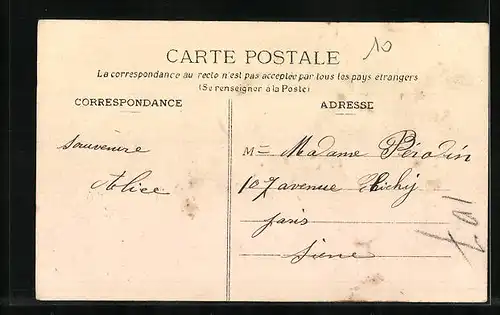 10
CARTE POSTALE
La correspondance au recto n'est pas acceptée par tous les pays étrangers
(Se renseigner à la Poste)
CORRESPONDANCE
ADRESSE
Souvenire
Alice
M= Madame Pérodin
107 avenue Clichy
paris
Siene
107